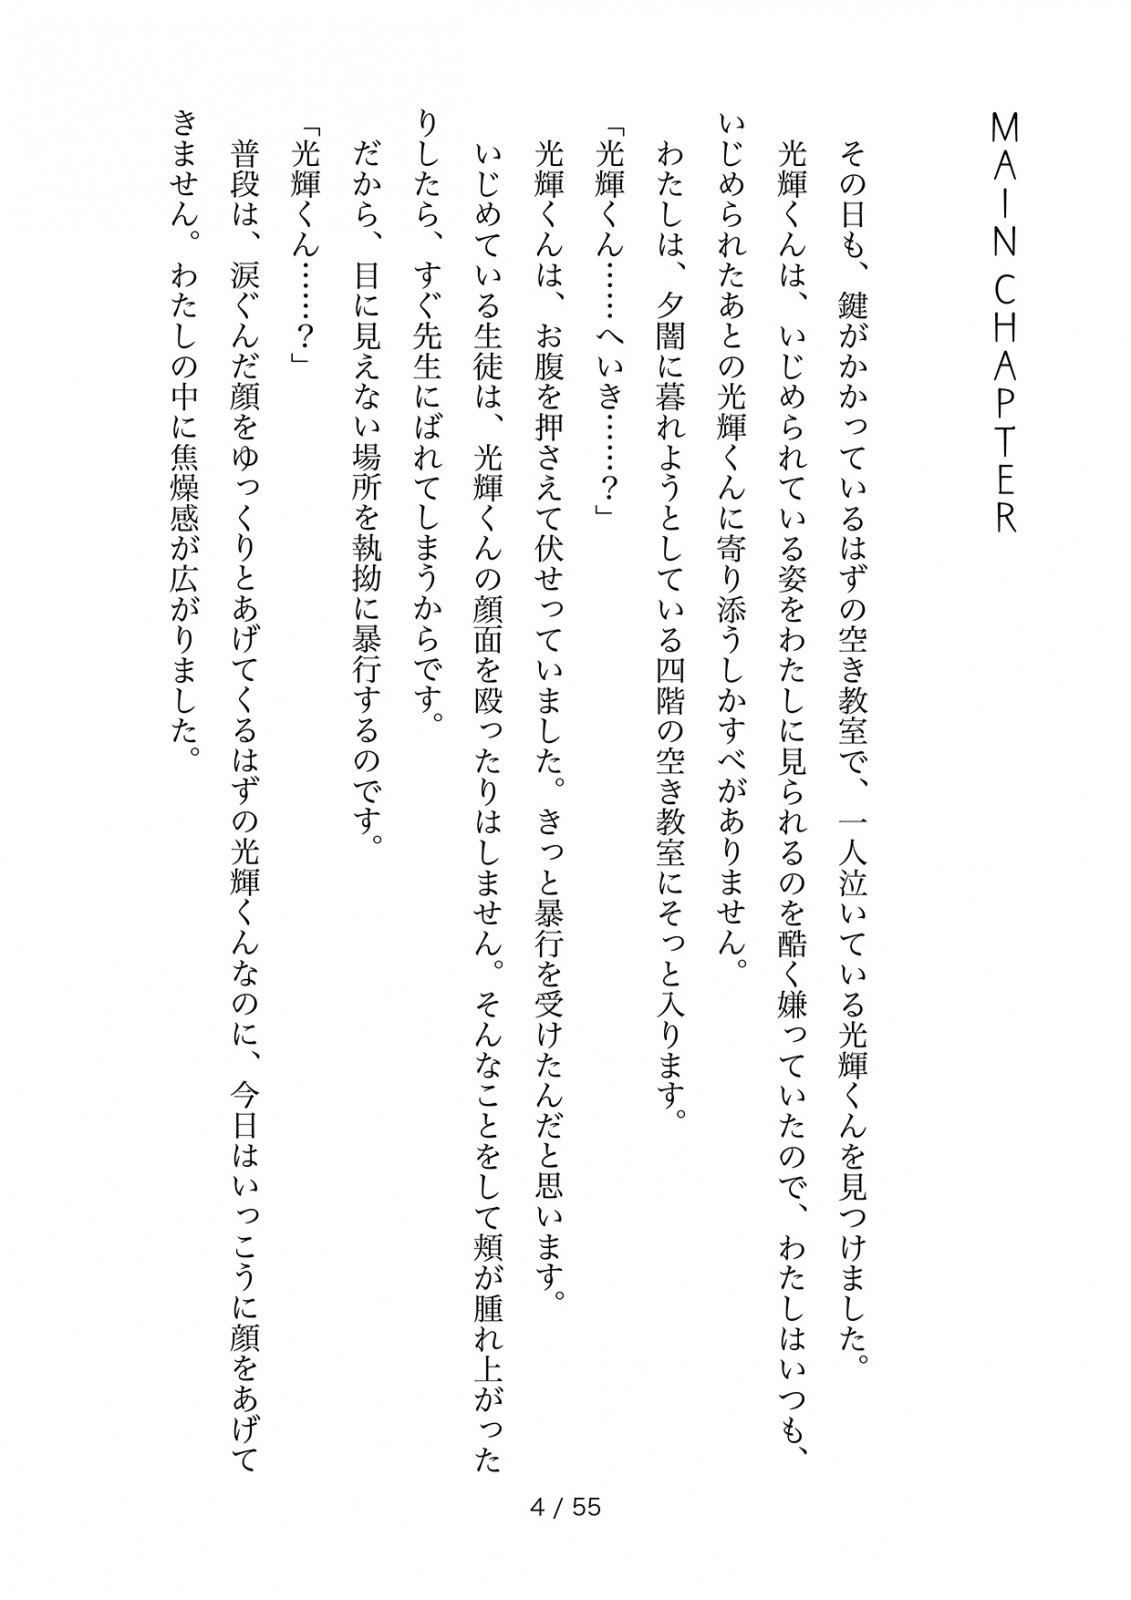 MAIN CHAPTER
その日も、鍵がかかっているはずの空き教室で、一人泣いている光輝くんを見つけました。
光輝くんは、いじめられている姿をわたしに見られるのを酷く嫌っていたので、わたしはいつも、
いじめられたあとの光輝くんに寄り添うしかすべがありません。
わたしは、夕闇に暮れようとしている四階の空き教室にそっと入ります。
「光輝くん……へいき……？」
光輝くんは、お腹を押さえて伏せっていました。きっと暴行を受けたんだと思います。
いじめている生徒は、光輝くんの顔面を殴ったりはしません。そんなことをして頬が腫れ上がった
りしたら、すぐ先生にばれてしまうからです。
だから、目に見えない場所を執拗に暴行するのです。
「光輝くん……？」
普段は、涙ぐんだ顔をゆっくりとあげてくるはずの光輝くんなのに、今日はいっこうに顔をあげて
きません。わたしの中に焦燥感が広がりました。
4 / 55